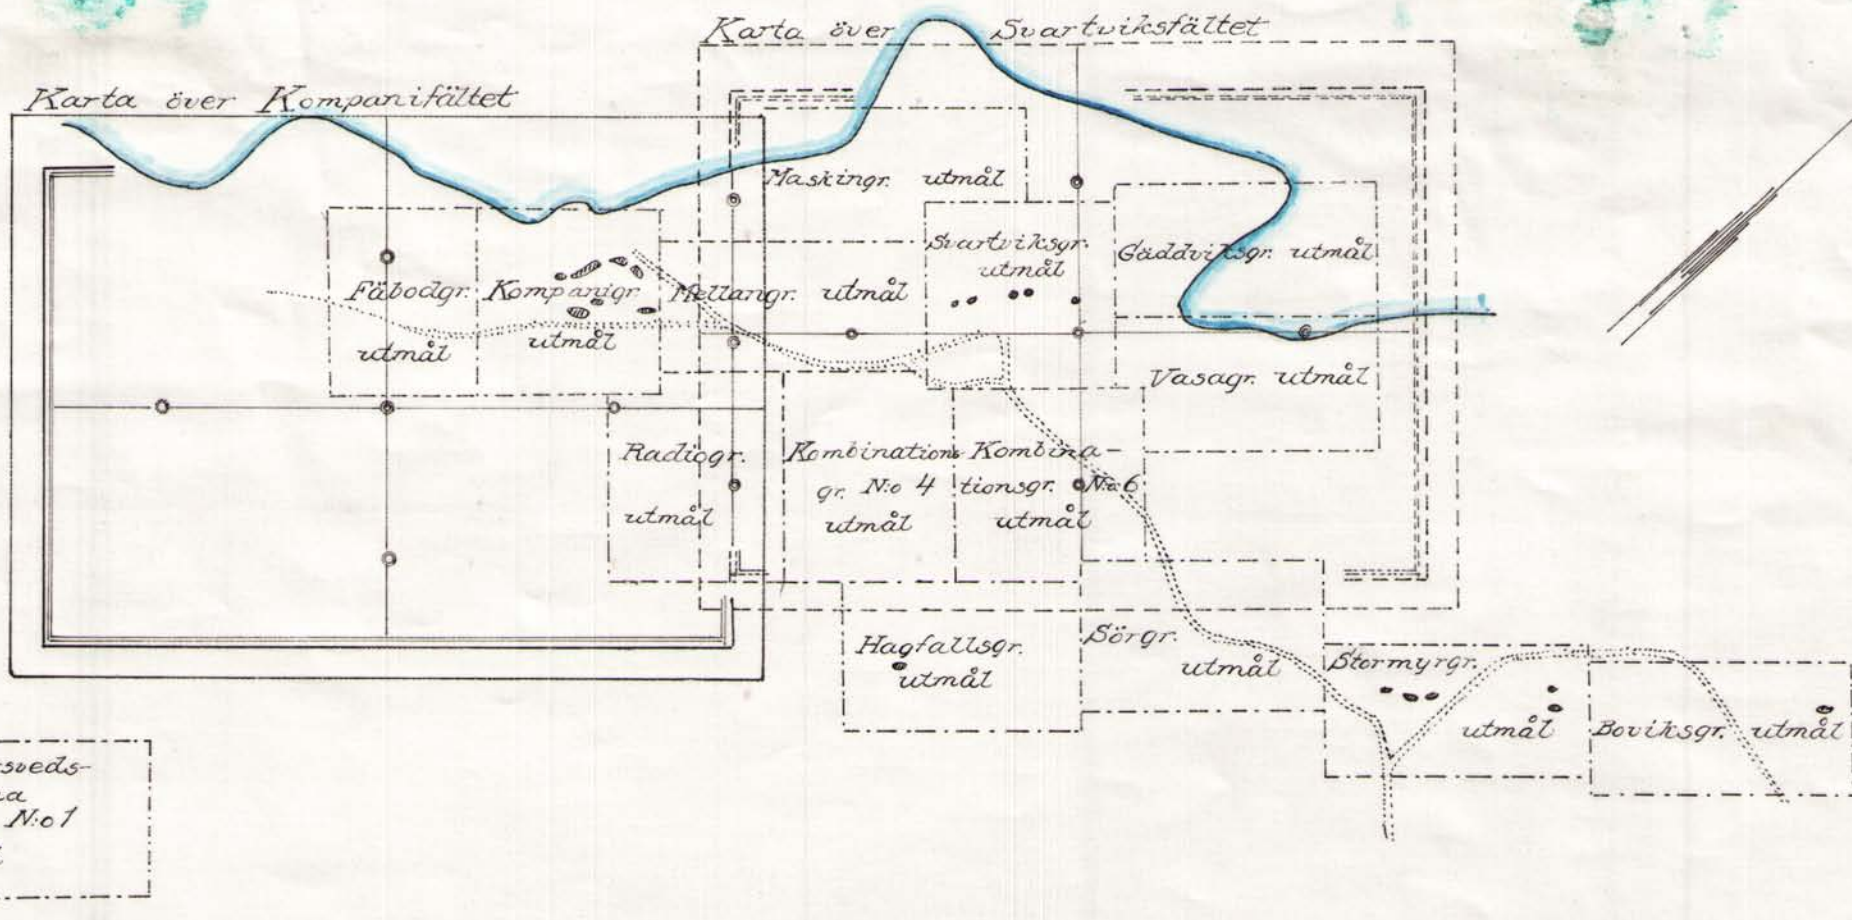 Karta över Svartviksfältet
Karta över Kompanifältet
Maskingr. utmål
Svartviksgr.
utmål
Gäddviksgr. utmål
Fäbodgr.
utmål
Kompanigr.
utmål
Mellangr. utmål
Vasagr. utmål
Radiogr.
utmål
Kombinations
gr. N:o 4
utmål
Kombina-
tionsgr. N:o 6
utmål
Hagfallsgr.
utmål
Sörgr.
utmål
Stormyrgr.
utmål
Boviksgr. utmål
sveds-
N:o 1